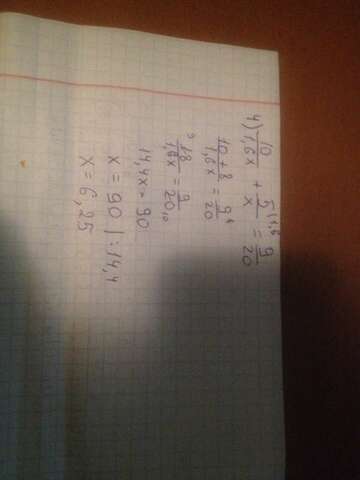 4) 10/1,6x + 5/x |1,6 = 9/20
10 + 8/1,6x = 9/20
18/1,6x = 9/20,0
14,4x = 90
x = 90 | : 14,4
x = 6,25